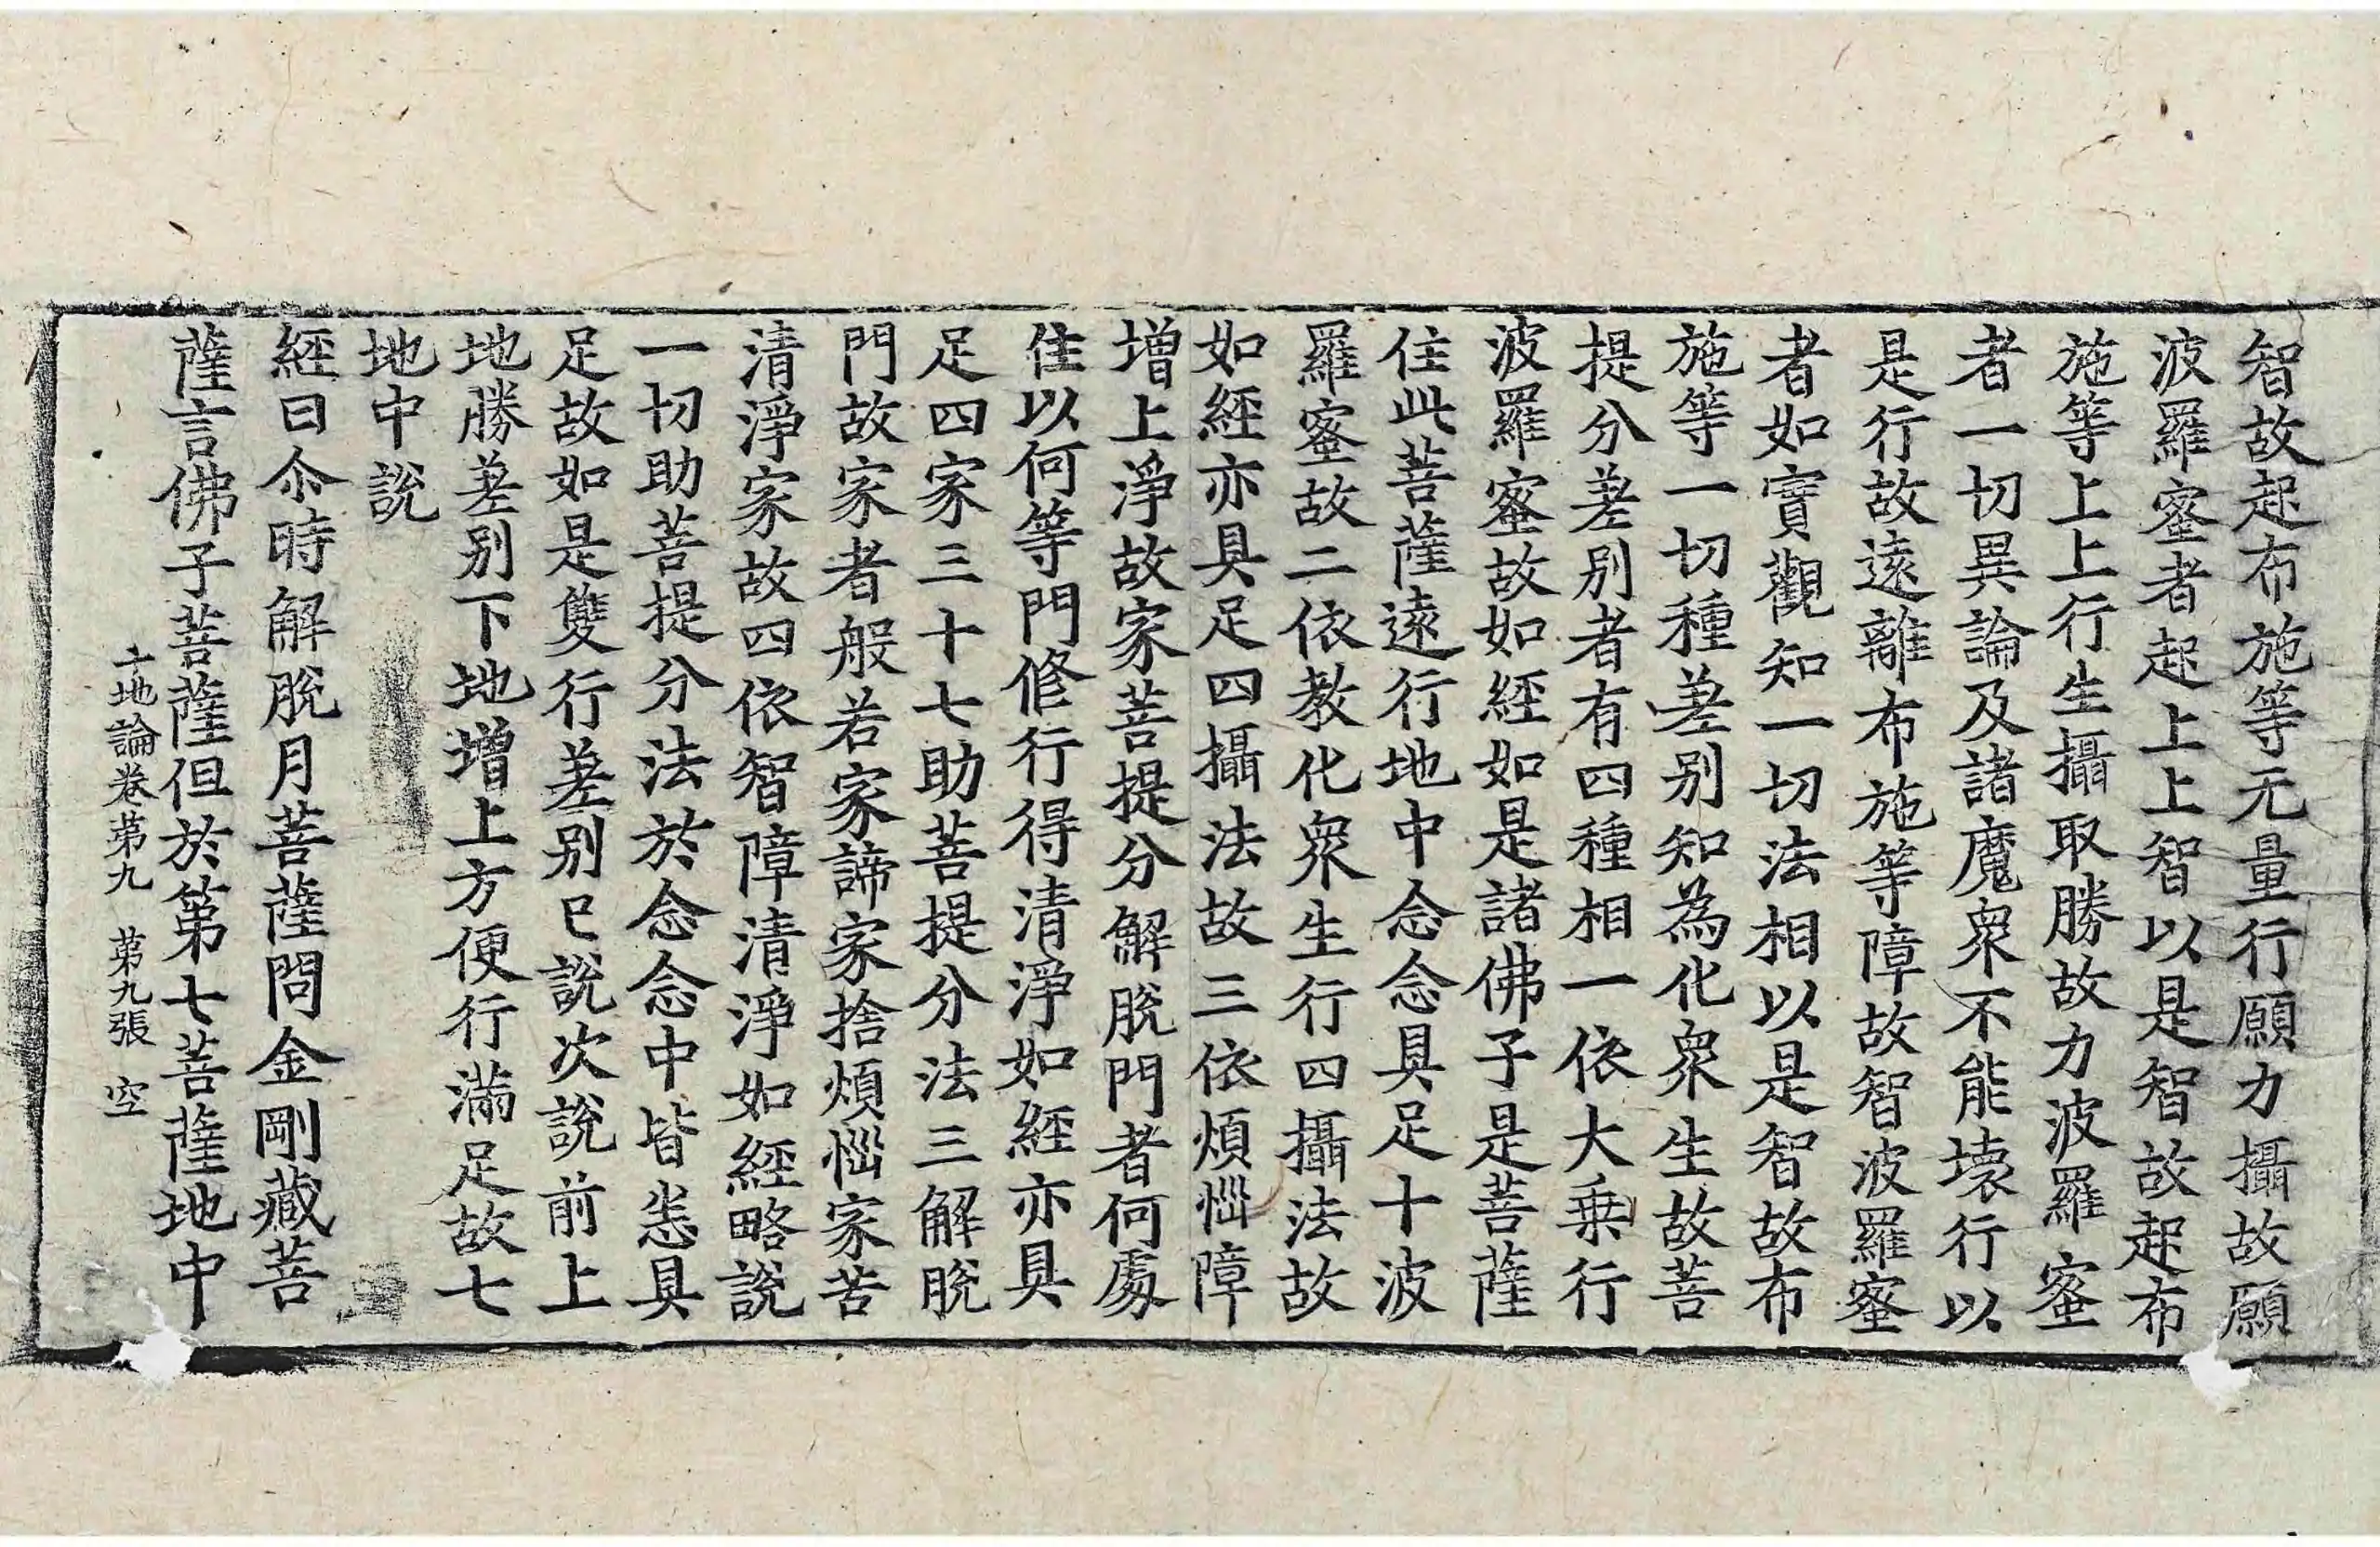 智故起布施等无量行願力攝故願
波羅蜜者起上上智以是智故起布
施等上上行生攝取勝故力波羅蜜
者一切異論及諸魔衆不能壊行以
是行故遠離布施等障故智波羅蜜
者如實觀知一切法相以是智故布
施等一切種差别知為化衆生故菩
提分差别者有四種相一依大乗行
波羅蜜故如經如是諸佛子是菩薩
住此菩薩遠行地中念念具足十波
羅蜜故二依教化衆生行四攝法故
如經亦具足四攝法故三依煩惱障
增上淨故家菩提分解脫門者何處
住以何等門修行得清淨如經亦具
足四家三十七助菩提分法三解脫
門故家者般若家諦家捨煩惱家苦
清淨家故四依智障清淨如經略說
一切助菩提分法於念念中皆悉具
足故如是雙行差别已說次說前上
地勝差别下地增上方便行滿足故七
地中說
經曰尒時解脫月菩薩問金剛藏菩
薩言佛子菩薩但於第七菩薩地中
十地論卷苐九 苐九張 空